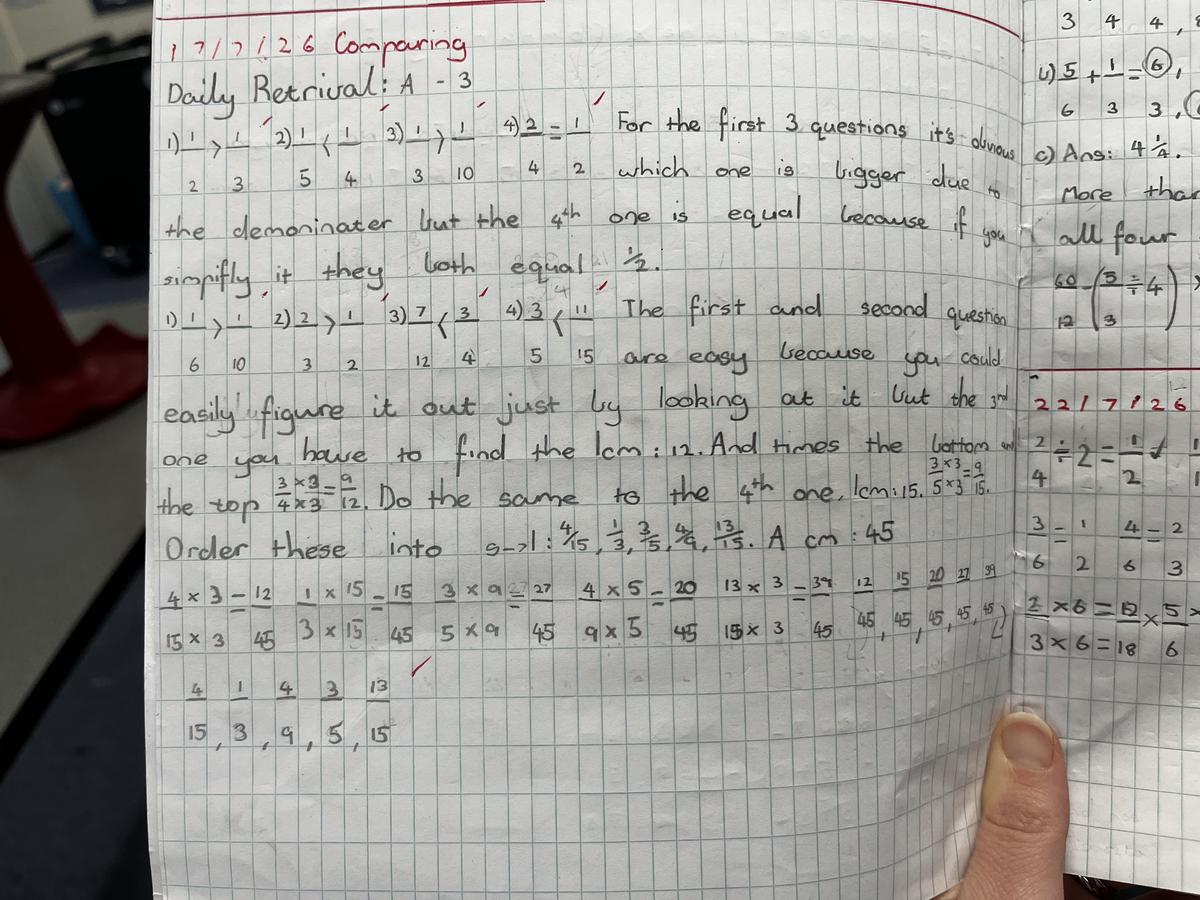 17/7/26 Comparing
Daily Retrival: A - 3
1) 1/2 > 1/3 2) 1/5 < 1/4 3) 1/3 > 1/10 4) 2/4 = 1/2 For the first 3 questions it's obvious
which one is bigger due to
the demoninater but the 4th one is equal because if you
simpifly it they both equal 1/2.
1) 1/6 > 1/10 2) 2/3 > 1/2 3) 7/12 < 3/4 4) 3/5 < 11/15 The first and second question
are easy because you could
easily figure it out just by looking at it but the 3rd
one you have to find the lcm: 12. And times the bottom and
the top 3×3/4×3 = 9/12. Do the same to the 4th one, lcm: 15. 3×3/5×3 = 9/15.
Order these into s->l: 4/15, 1/3, 3/5, 4/9, 13/15. A cm: 45
4×3/15×3 = 12/45 1×15/3×15 = 15/45 3×9/5×9 = 27/45 4×5/9×5 = 20/45 13×3/15×3 = 39/45 12/45, 15/45, 20/45, 27/45, 39/45
4/15, 1/3, 4/9, 3/5, 13/15
3 4 4,
b) 5/6 + 1/3 = 6/3,
c) Ans: 4 1/4.
More than
all four
60/12 - (3/3 ÷ 4)
22/7/26
2/4 ÷ 2 = 1/2
3/6 = 1/2 4/6 = 2/3
2×6/3×6 = 12/18 × 5/6